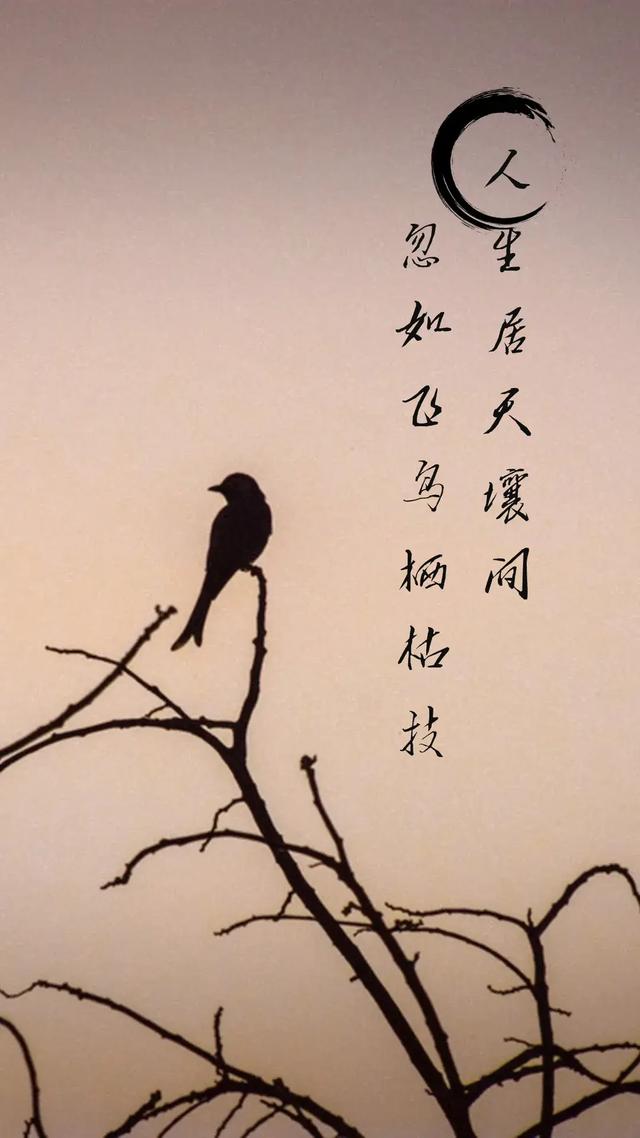 人生居天壤间
忽如飞鸟栖枯技